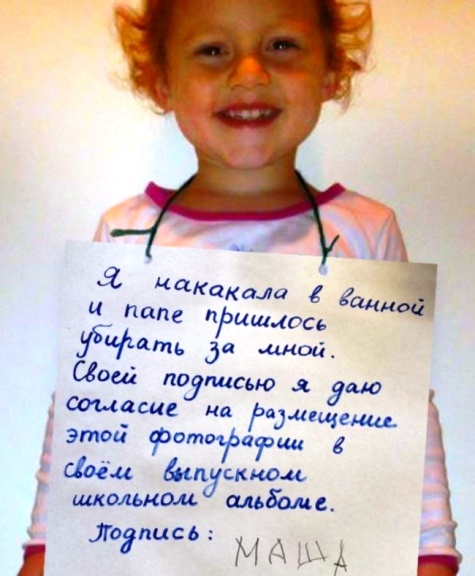 Я накакала в ванной
и папе пришлось
убирать за мной.
Своей подписью я даю
согласие на размещение
этой фотографии в
своём выпускном
школьном альбоме.
Подпись: МАША